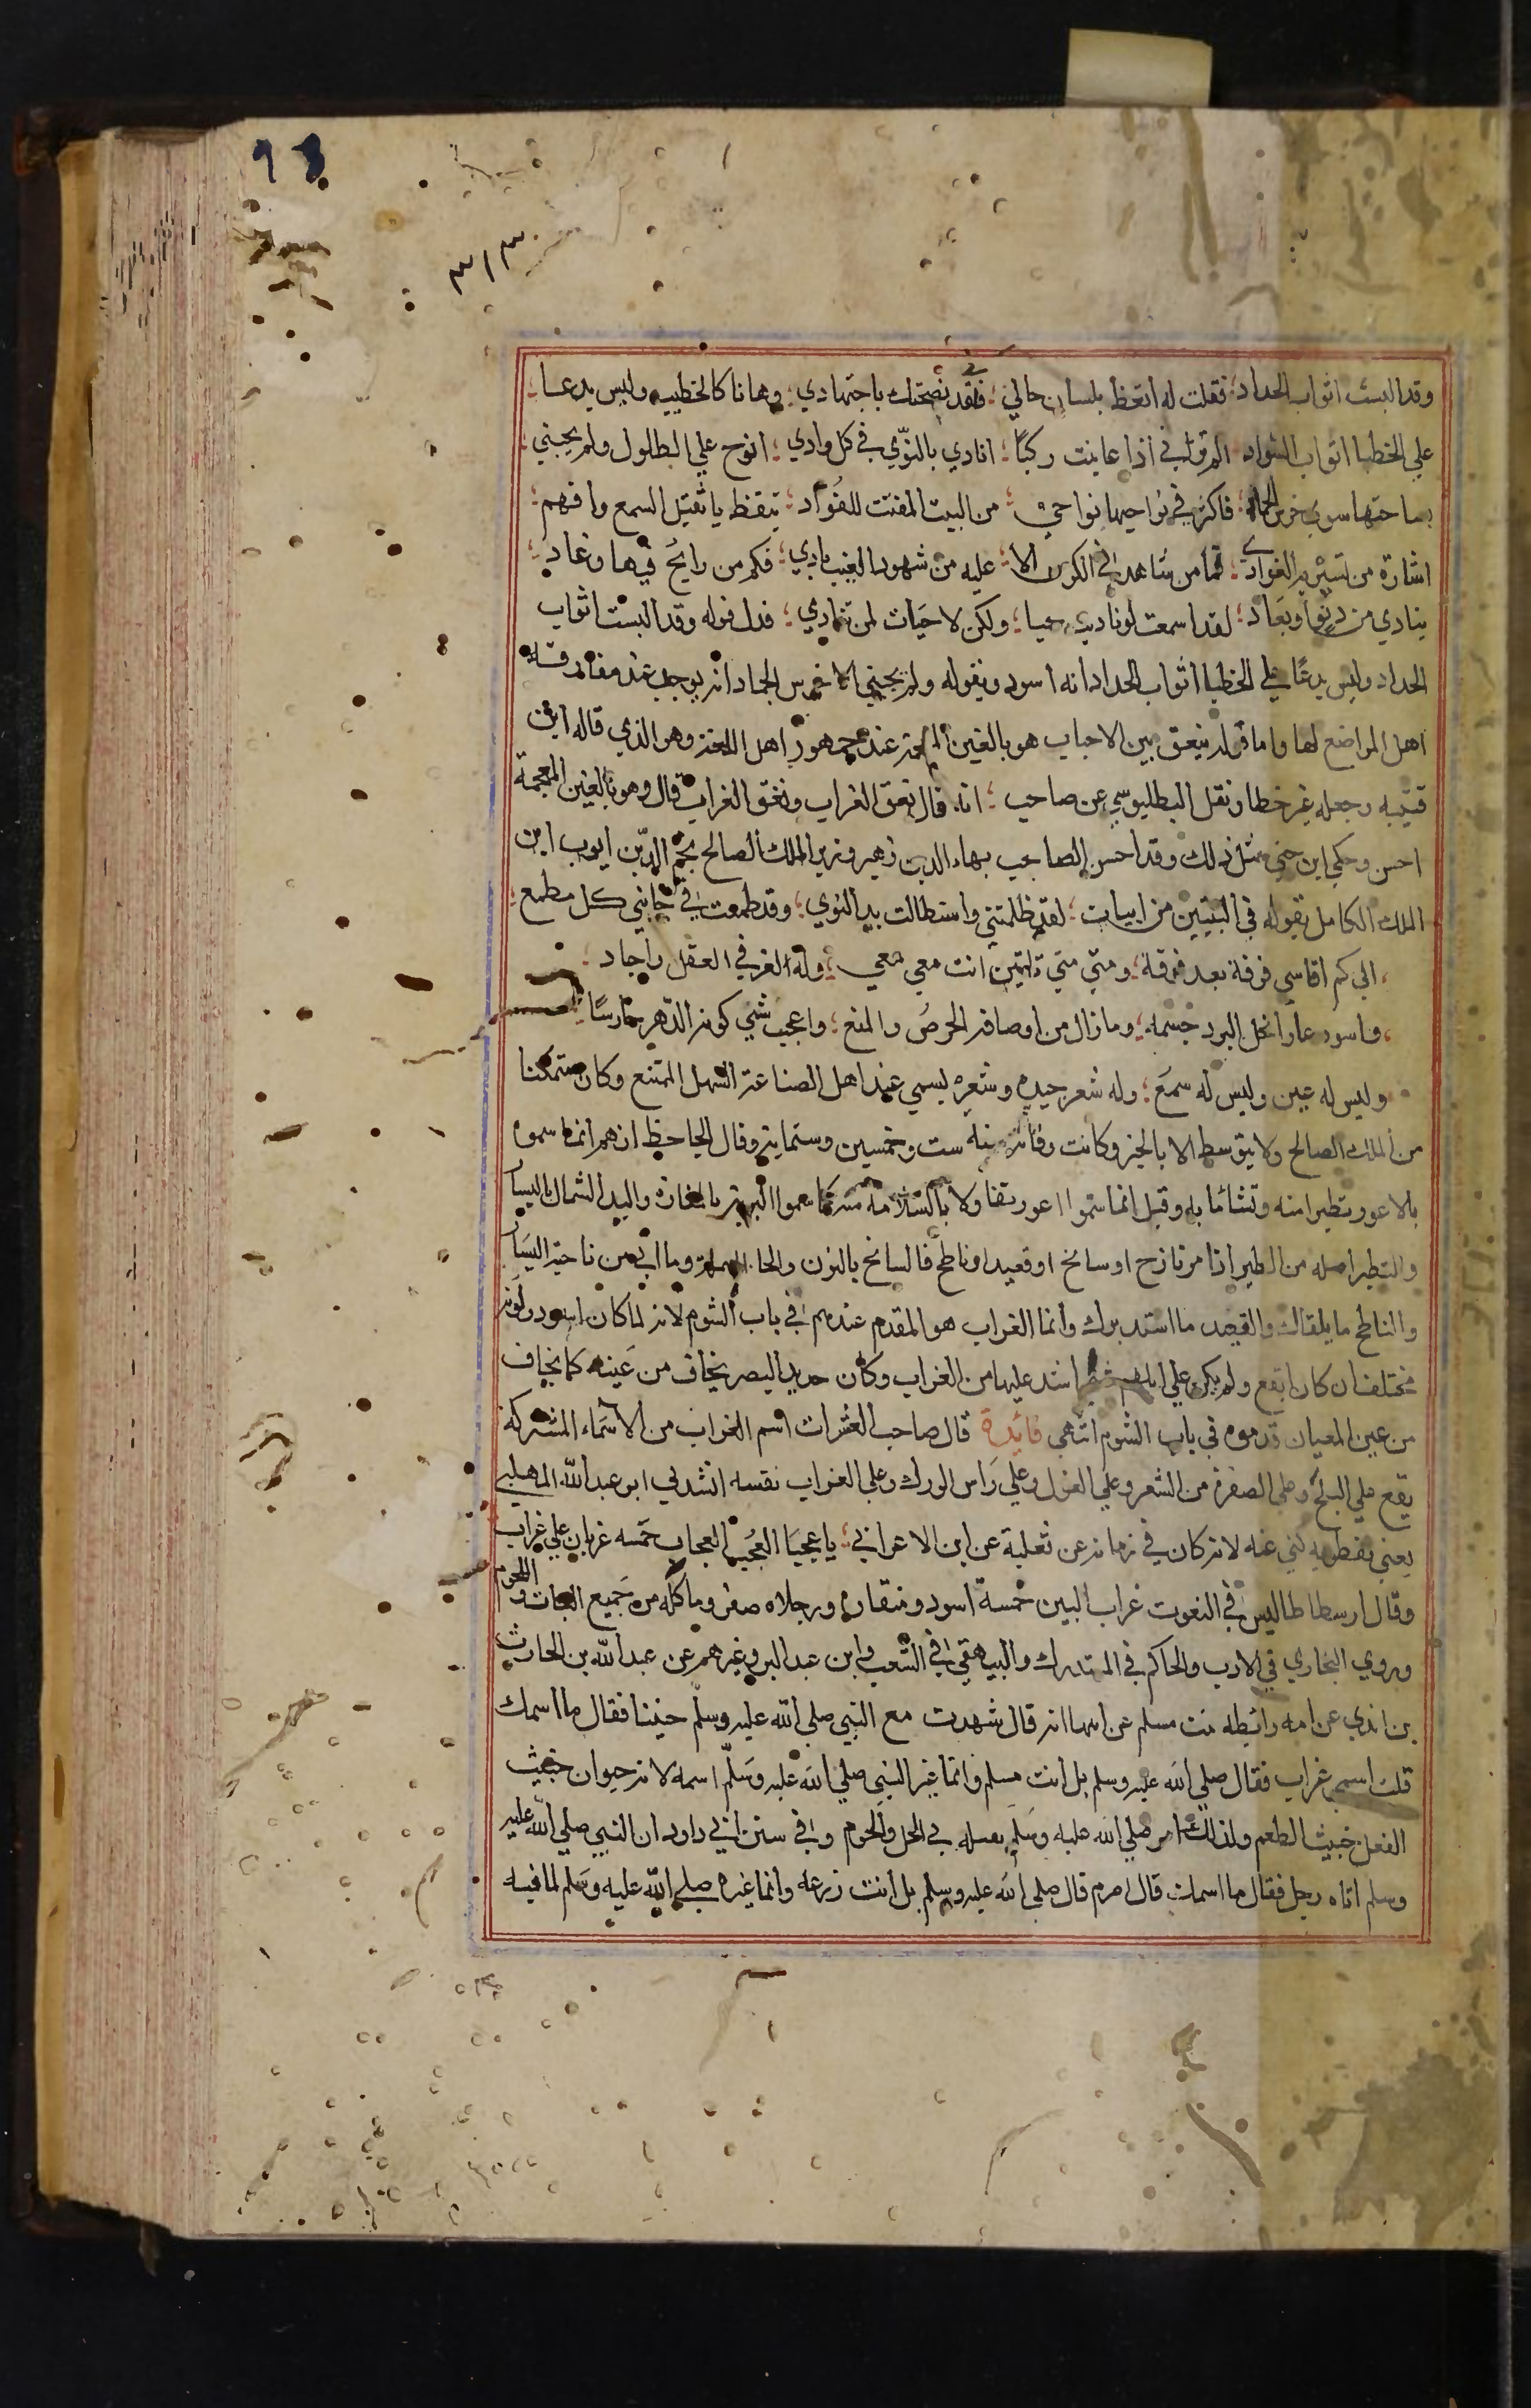 98
٣١٣
وقد البست اثواب الحداد؛ فقلت له اتعظ بلسان حالي؛ فقد نصحتك باجتهادي؛ وهانا كالخطيب وليس بدعا؛
علي الخطبا اثواب السواد الم ترني اذا عاينت ركبًا؛ انادي بالنّوّي في كل وادي؛ انوح علي الطلول ولم يجبني؛
بساحتها سوي خرس الجماد؛ فاكثر في نواحيها نواحي؛ من البين المفتت للفُوَاد؛ تيقظ يا ثقيل السمع وافهم؛
اشارة من تسير به الغوادي؛ فما من شاهد في الكون الا؛ عليه من شهود الغيب بادي؛ فكم من رايحٌ فيها وغاد؛
ينادي من دنوّ او بعَاد؛ لقد اسمعت لو ناديت حيا؛ ولكن لا حيَات لمن تنادي؛ فدل قوله وقد البست اثواب
الحداد وليس بدعًا علي الخطبا اثواب الحداد انه اسود وبقوله ولم يجبني الا خرس الجماد انه يوجد عند مفارقة
اهل المواضع لها واما قوله ينعق بين الاحباب هو بالغين المعجمة عند جمهور اهل اللغة وهو الذي قاله ابن
قتيبه وجعله غيره خطا ونقل البطليوسي عن صاحب؛ انه قال نعق الغراب ونغق الغراب قال وهو بالغين المعجمة
احسن وحكي ابن جني مثل ذلك وقد احسن الصاحب بهاء الدين زهير وزير الملك الصالح نجم الدّين ايوب ابن
الملك الكامل بقوله في البيتين من ابيات؛ لقد ظلمتني واستطالت يد النوي؛ وقد طمعت في جانبي كل مطمع؛
الي كم اقاسي فرقة بعد فرقة؛ ومتي متي تابين انت معي معي؛ وله الغز في العقل واجاد؛
واسود عار انحل البرد جسمه؛ وما زال من اوصافه الحرصُ والمنع؛ واعجب شي كونه الدّهر حارسًا
وليس له عين وليس له سمعَ؛ وله شعر جيد وشعره يسمي عند اهل الصناعة السهل الممتنع وكان متمكنا
من الملك الصالح ولا يتوسط الا بالخير وكانت وفاته سنة ست وخمسين وستماية وقال الجاحظ انهم انما سموه
بالاعور تطيرا منه وتشائما به وقيل انما سَموا اعور تفاولا بالسّلامة منه كما سموا البرية بالمفازة واليد الشمال باليسار
والتطير اصله من الطير اذا مر نازح او سانح او قعيد او ناطح فالسانح بالنون والحا المهملة وما اتي من ناحية اليسَار
والناطح ما يلقاك والقعيد ما استدبرك وانما الغراب هو المقدم عندهم في باب الشوم لانه لما كان اسود ولونه
مختلفا ان كان ابقع ولم يكن علي ابلهم شي اشد عليها من الغراب وكان حديد البصر يخاف من عَينه كما يخاف
من عين المعيان قدموه في باب الشوم انتهي فائدة قال صاحب العثرات اسم الغراب من الاسَماء المشتركة
يقع علي البلح وعلي الصفرة من الشعر وعلي الغول وعلي رَاس الورك وعلي الغراب نفسه انشدني ابو عبد الله المهلبي
يعني نفطويه كني عنه لانه كان في زمانه عن ثعلبة عن ابن الاعرابي؛ يا عجبَا العُجب العجاب خمسه غربان علي غراب
وقال ارسطا طاليس في النعوت غراب البين خمسة اسود ومنقاره ورجلاه صفر وما كله من جميع النبات واللحوم
وروي البخاري في الادب والحاكم في المستدرك والبيهقي في الشعب وابن عبد البر وغيرهم عن عبد الله بن الحارث
بن ابذي عن امه رائيطه بنت مسلم عن ابيها انه قال شهدت مع النبي صلي الله عليه وسلم حنينا فقال ما اسمك
قلت اسمي غراب فقال صلي الله عليه وسلم بل انت مسلم وانما غير النبي صلي الله عليه وسَلم اسمه لانه حيوان خبيث
الفعل خبيث الطعم ولذلك امر صلي الله عليه وسَلم بقتله في الحل والحرم وفي سنن ابي داود ان النبي صلي الله عليه
وسلم اتاه رجل فقال ما اسمك قال اصرم قال صلي الله عليه وسلم بل انت زرعه وانما غيره صلي الله عليه وسَلم لما فيه